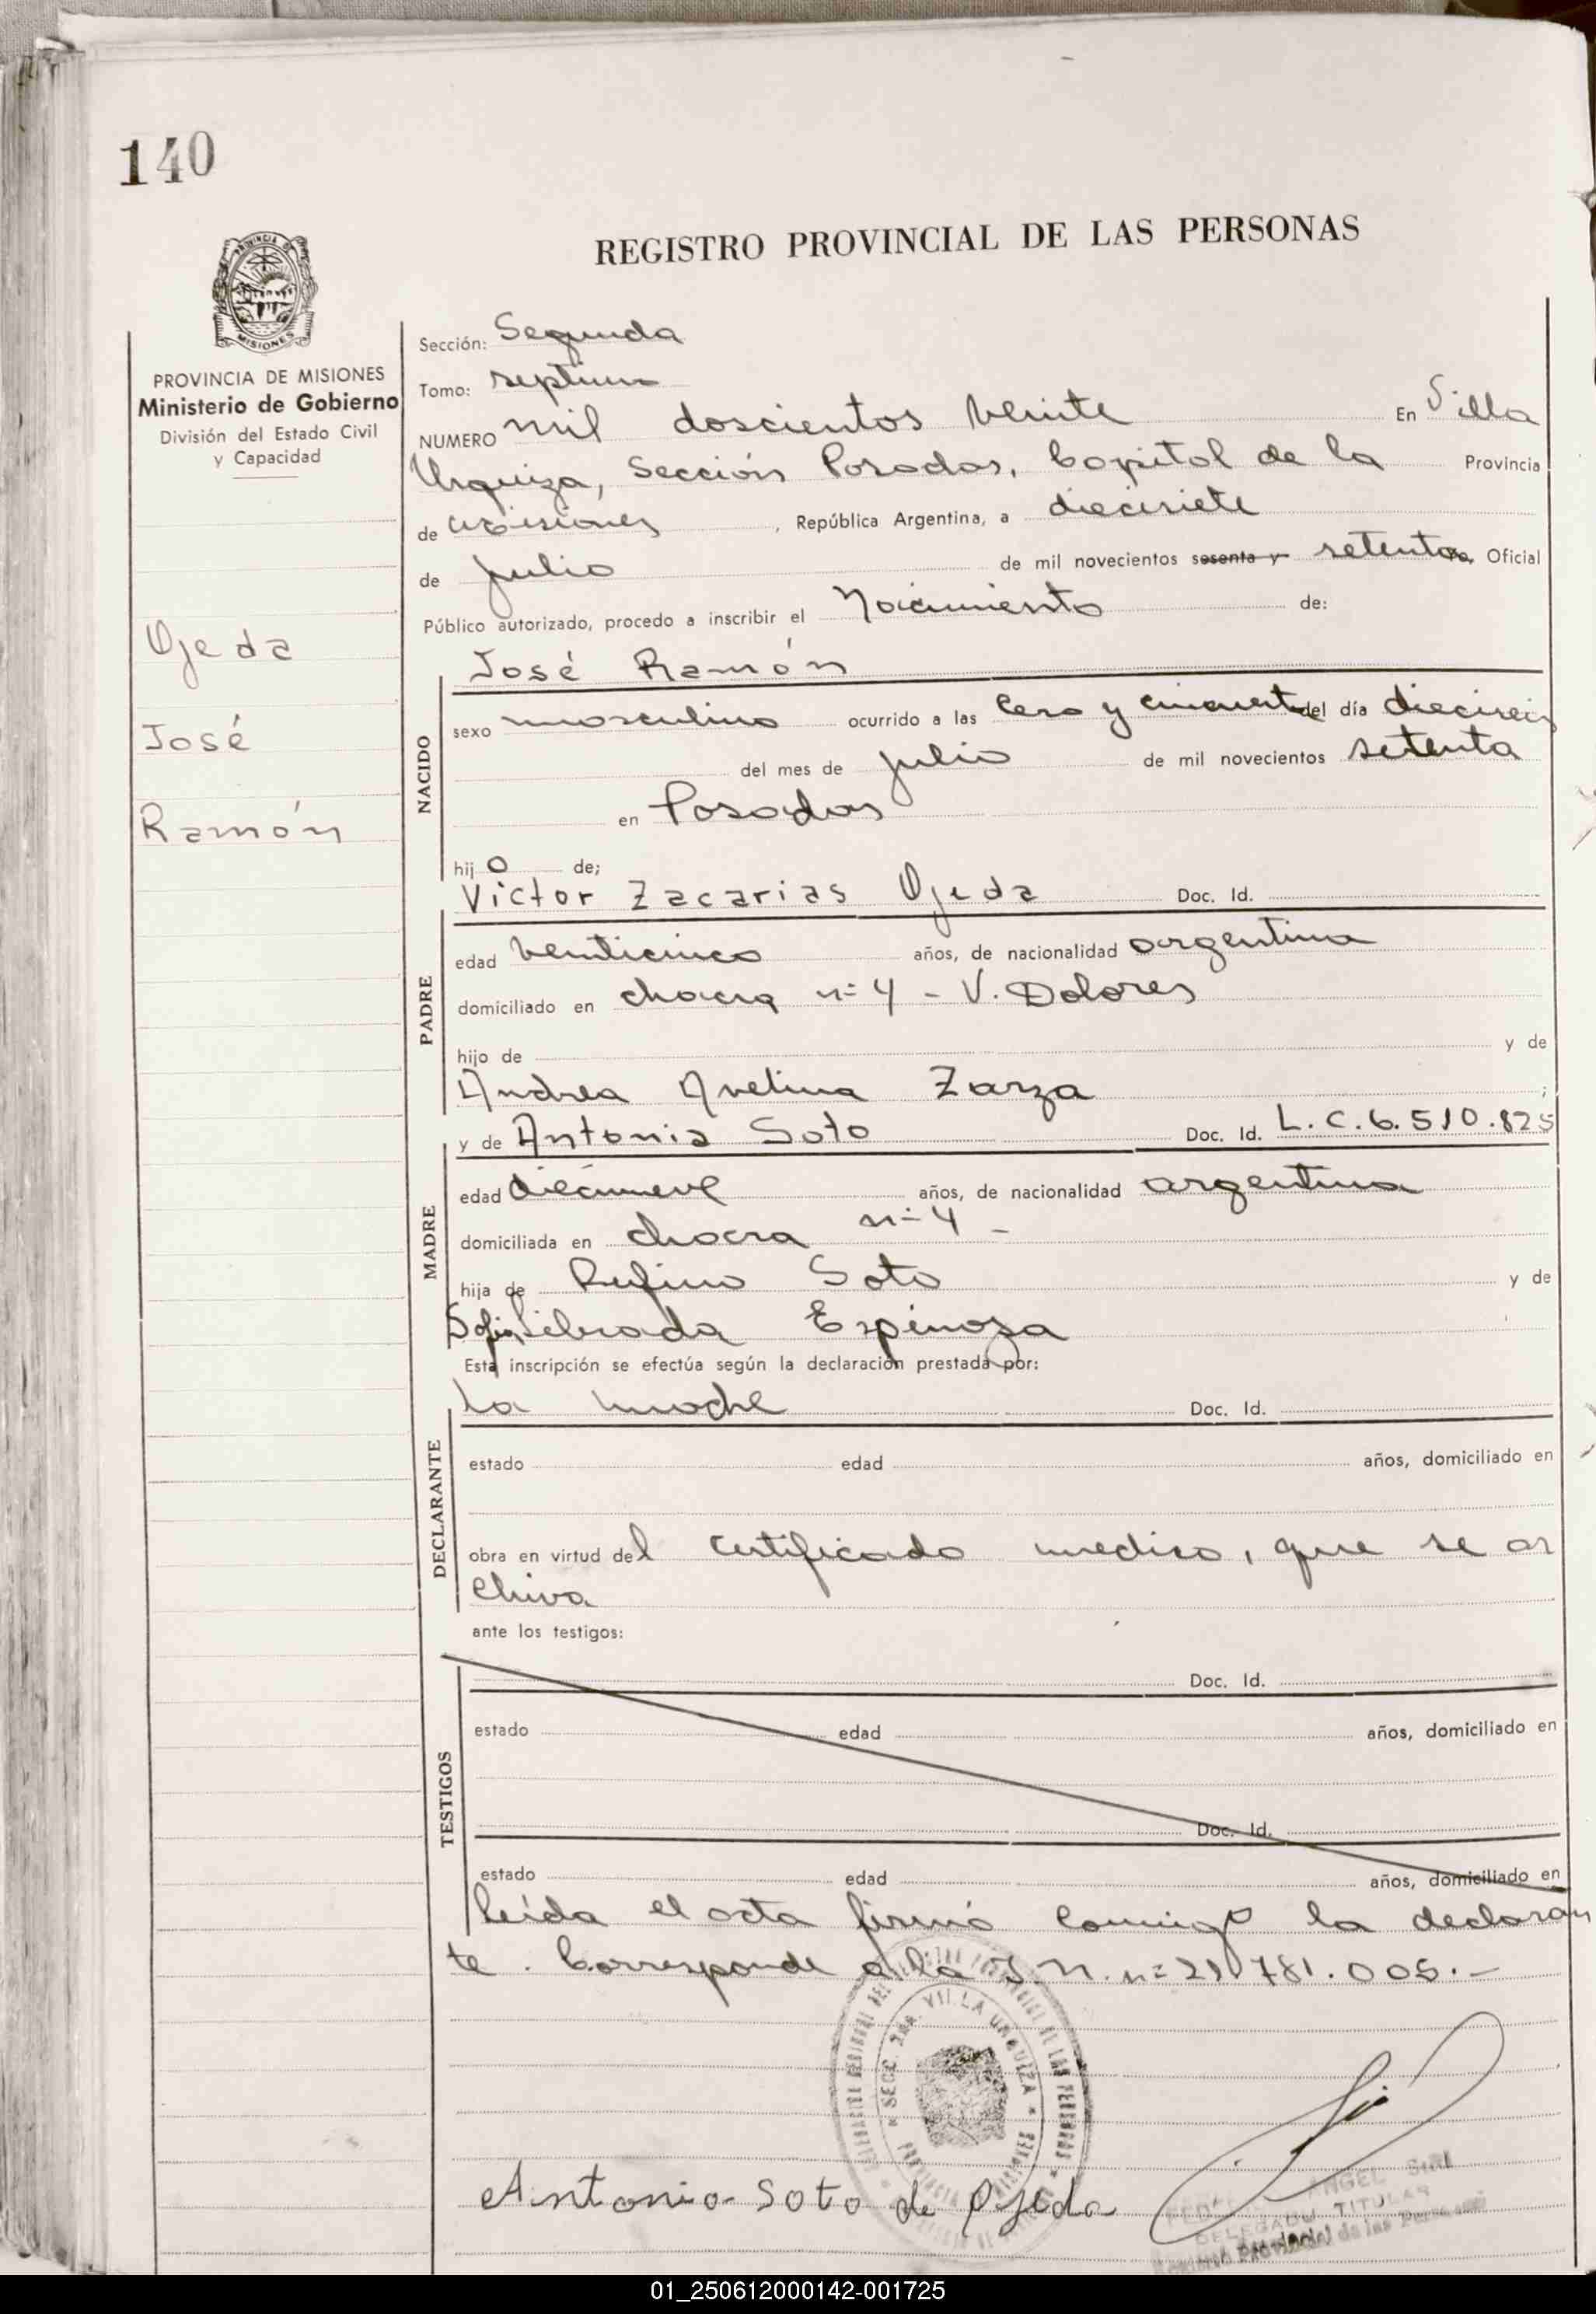 140
REGISTRO PROVINCIAL DE LAS PERSONAS
PROVINCIA DE MISIONES
Ministerio de Gobierno
División del Estado Civil
y Capacidad
Ojeda
José
Ramón
Sección: Segunda
Tomo: septimo
NUMERO mil doscientos veinte En Villa
Urquiza, Sección Posadas, Capital de la Provincia
de Misiones, República Argentina, a diecisiete
de julio de mil novecientos sesenta y setenta Oficial
Público autorizado, procedo a inscribir el Nacimiento de:
José Ramón
NACIDO
sexo masculino ocurrido a las cero y cincuenta del día dieciseis
del mes de julio de mil novecientos setenta
en Posadas
hijo de;
Victor Zacarias Ojeda Doc. Id.
PADRE
edad veinticinco años, de nacionalidad argentina
domiciliado en chacra nº 4 - V. Dolores
hijo de y de
Andrea Avelina Zarza ;
y de Antonia Soto Doc. Id. L.C. 6.510.825
MADRE
edad diecinueve años, de nacionalidad argentina
domiciliada en chacra nº 4 -
hija de Rufino Soto y de
Sofia Librada Espinoza
Esta inscripción se efectúa según la declaración prestada por:
La madre Doc. Id.
DECLARANTE
estado edad años, domiciliado en
obra en virtud del certificado medico, que se ar
chiva
ante los testigos:
Doc. Id.
TESTIGOS
estado edad años, domiciliado en
Doc. Id.
estado edad años, domiciliado en
Leída el acta firmó conmigo la declaran
te. Corresponde a la nº 21.781.005.-
SECC. 2da. VILLA URQUIZA
Antonia Soto de Ojeda
ANGEL SIRI
DELEGADO TITULAR
Provincial de las Personas
01_250612000142-001725